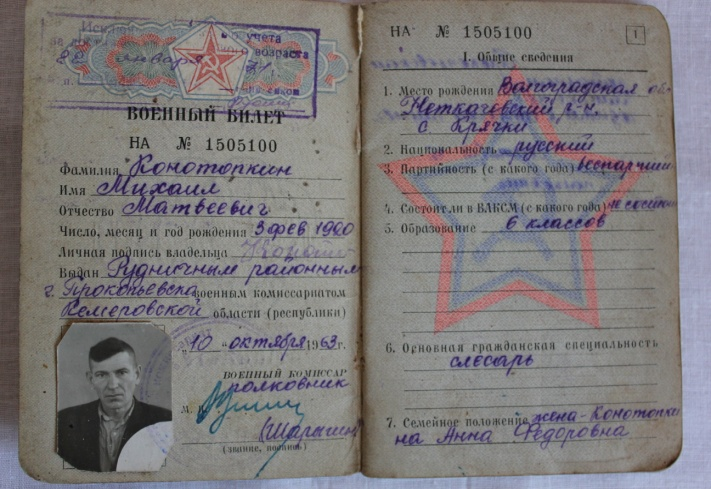 учета
возраста
января
ВОЕННЫЙ БИЛЕТ
НА № 1505100
Фамилия Конотопкин
Имя Михаил
Отчество Матвеевич
Число, месяц и год рождения 3 фев 1920
Личная подпись владельца
Выдан Рудничным районным
г. Прокопьевска военным комиссариатом
Кемеровской области (республики)
"10" октября 1963 г.
ВОЕННЫЙ КОМИССАР
полковник
М.
(Шарыгин)
(звание, подпись)
НА № 1505100
1
I. Общие сведения
1. Место рождения Волгоградская
р-н.
с Крячки
2. Национальность русский
3. Партийность (с какого года) беспартийн
4. Состоит ли в ВЛКСМ (с какого года) не состоит
5. Образование 6 классов
6. Основная гражданская специальность
слесарь
7. Семейное положение жена-Конотопки
на Анна Федоровна